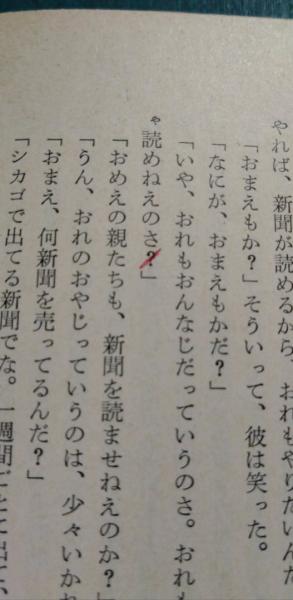 やれば、新聞が読めるから、おれもやりたいんだ
「おまえもか？」そういって、彼は笑った。
「なにが、おまえもかだ？」
「いや、おれもおんなじだっていうのさ。おれも
ゃ読めねえのさ？」
「おめえの親たちも、新聞を読ませねえのか？」
「うん、おれのおやじっていうのは、少々いかれ
「おまえ、何新聞を売ってるんだ？」
「シカゴで出てる新聞でな。一週間ごとに出て、